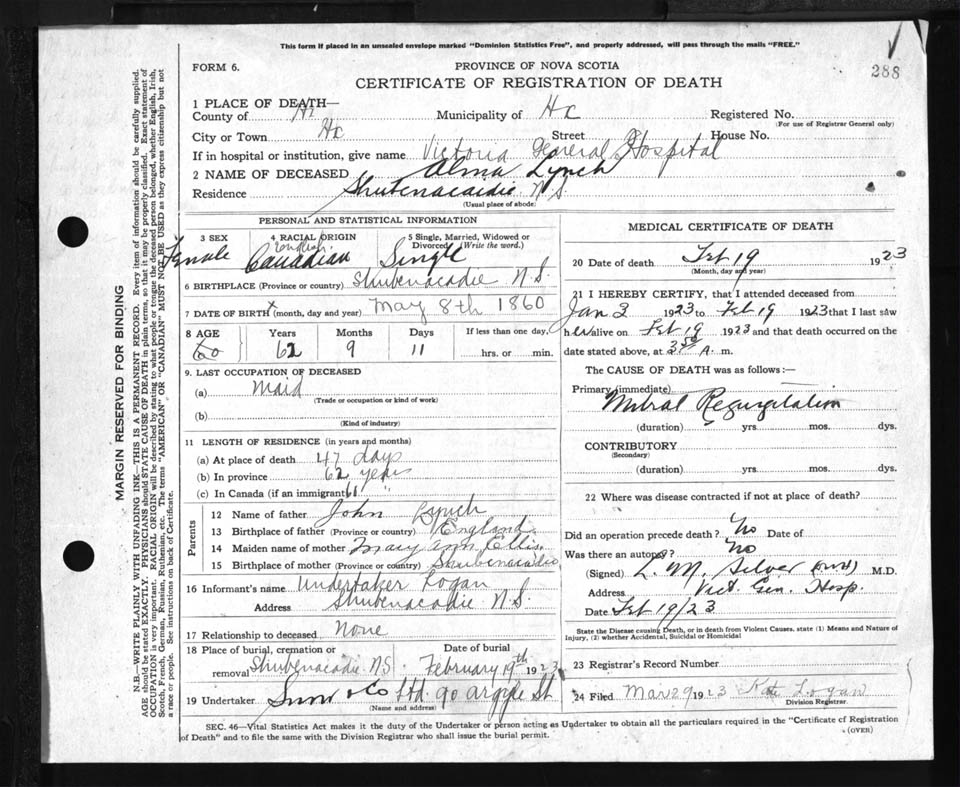 This form if placed in an unsealed envelope marked "Dominion Statistics Free", and properly addressed, will pass through the mails "FREE."
FORM 6.
PROVINCE OF NOVA SCOTIA
288
CERTIFICATE OF REGISTRATION OF DEATH
1 PLACE OF DEATH—
County of Hx Municipality of Hx Registered No.
(For use of Registrar General only)
City or Town Hx Street House No.
If in hospital or institution, give name Victoria General Hospital
2 NAME OF DECEASED Alma Lynch
Residence Shubenacaidie N.S.
(Usual place of abode)
PERSONAL AND STATISTICAL INFORMATION
3 SEX 4 RACIAL ORIGIN 5 Single, Married, Widowed or Divorced (Write the word.)
Female English Canadian Single
6 BIRTHPLACE (Province or country) Shubenacadie N.S.
7 DATE OF BIRTH (month, day and year) May 8th 1860
8 AGE Years Months Days If less than one day,
60 62 9 11 hrs. or min.
9. LAST OCCUPATION OF DECEASED
(a) Maid
(Trade or occupation or kind of work)
(b)
(Kind of industry)
11 LENGTH OF RESIDENCE (in years and months)
(a) At place of death 47 days
(b) In province 62 years
(c) In Canada (if an immigrant) "
Parents
12 Name of father John Lynch
13 Birthplace of father (Province or country) England
14 Maiden name of mother Mary Ann Ellis
15 Birthplace of mother (Province or country) Shubenacadie
16 Informant's name Undertaker Logan
Address Shubenacadie N.S.
17 Relationship to deceased None
18 Place of burial, cremation or removal Shubenacadie N.S. Date of burial February 19th 1923
19 Undertaker Snow & Co Ltd. 90 Argyle St.
(Name and address)
MEDICAL CERTIFICATE OF DEATH
20 Date of death Feb 19 1923
(Month, day and year)
21 I HEREBY CERTIFY, that I attended deceased from
Jan 3 1923 to Feb 19 1923 that I last saw
her alive on Feb 19 1923 and that death occurred on the
date stated above, at 3.50 A. m.
The CAUSE OF DEATH was as follows:—
Primary (immediate)
Mitral Regurgitation
(duration) yrs. mos. dys.
CONTRIBUTORY
(Secondary)
(duration) yrs. mos. dys.
22 Where was disease contracted if not at place of death?
Did an operation precede death? No Date of
Was there an autopsy? No
(Signed) L. M. Silver M.D.
Address Vict. Gen. Hosp.
Date Feb 19/23
State the Disease causing Death, or in death from Violent Causes, state (1) Means and Nature of
Injury, (2) whether Accidental, Suicidal or Homicidal
23 Registrar's Record Number
24 Filed Mar 29 1923 Kate Logan
Division Registrar.
SEC. 46—Vital Statistics Act makes it the duty of the Undertaker or person acting as Undertaker to obtain all the particulars required in the "Certificate of Registration
of Death" and to file the same with the Division Registrar who shall issue the burial permit.
(OVER)
MARGIN RESERVED FOR BINDING
N.B—WRITE PLAINLY WITH UNFADING INK—THIS IS A PERMANENT RECORD. Every item of information should be carefully supplied.
AGE should be stated EXACTLY. PHYSICIANS should STATE CAUSE OF DEATH in plain terms, so that it may be properly classified. Exact statement of
OCCUPATION is very important. RACIAL ORIGIN will be described by stating to what people or tongue the deceased person belonged, whether English, Irish,
Scotch, French, German, Russian, Ruthenian, etc. The terms "AMERICAN" OR "CANADIAN" MUST NOT BE USED as they express citizenship but not
a race or people. See instructions on back of Certificate.